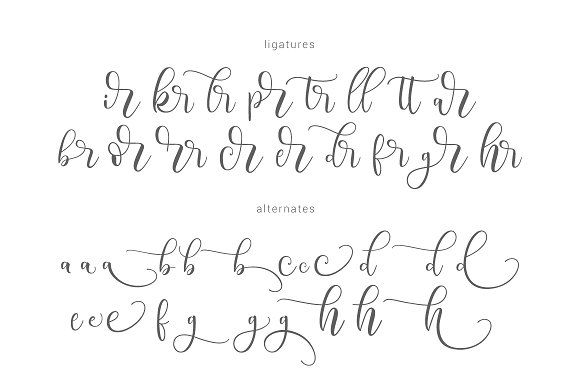 ligatures
ir kr lr pr tr ll tt ar
br or rr cr er dr fr gr hr
alternates
a a a b b b c c c d d d
e e e f g g g h h h